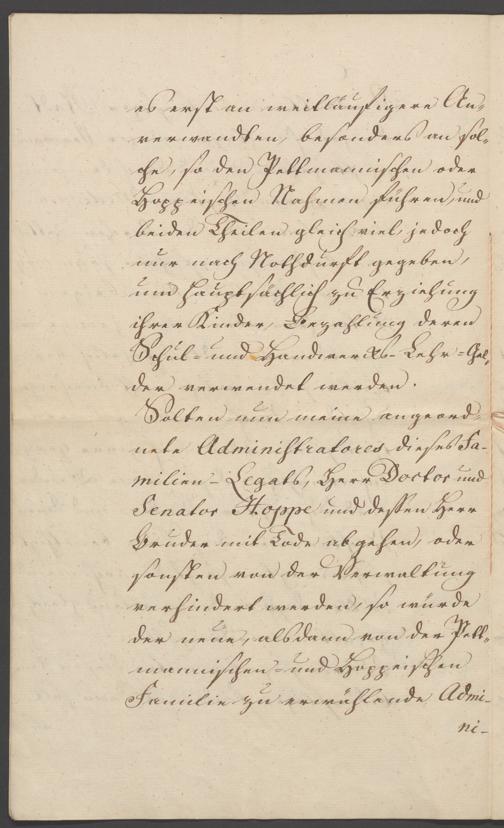 es erst an weitläufigere An-
verwandten, besonders an sol-
che, so den Pettmannischen oder
Hoppeischen Nahmen führen, und
beiden Theilen gleich viel, jedoch
nur nach Nothdurft gegeben,
und hauptsächlich zu Erziehung
ihrer Kinder, Bezahlung deren
Schul- und Handwerks-Lehr-Gel-
der verwendet werden.
Solten nun meine angeord-
nete Administratores dieses Fa-
milien-Legats, Herr Doctor und
Senator Hoppe und dessen Herr
Bruder mit Tode abgehen, oder
sonsten von der Verwaltung
verhindert werden, so würde
der neue, alsdann von der Pett-
mannischen- und Hoppeischen
Familie zu erwählende Admi-
ni-